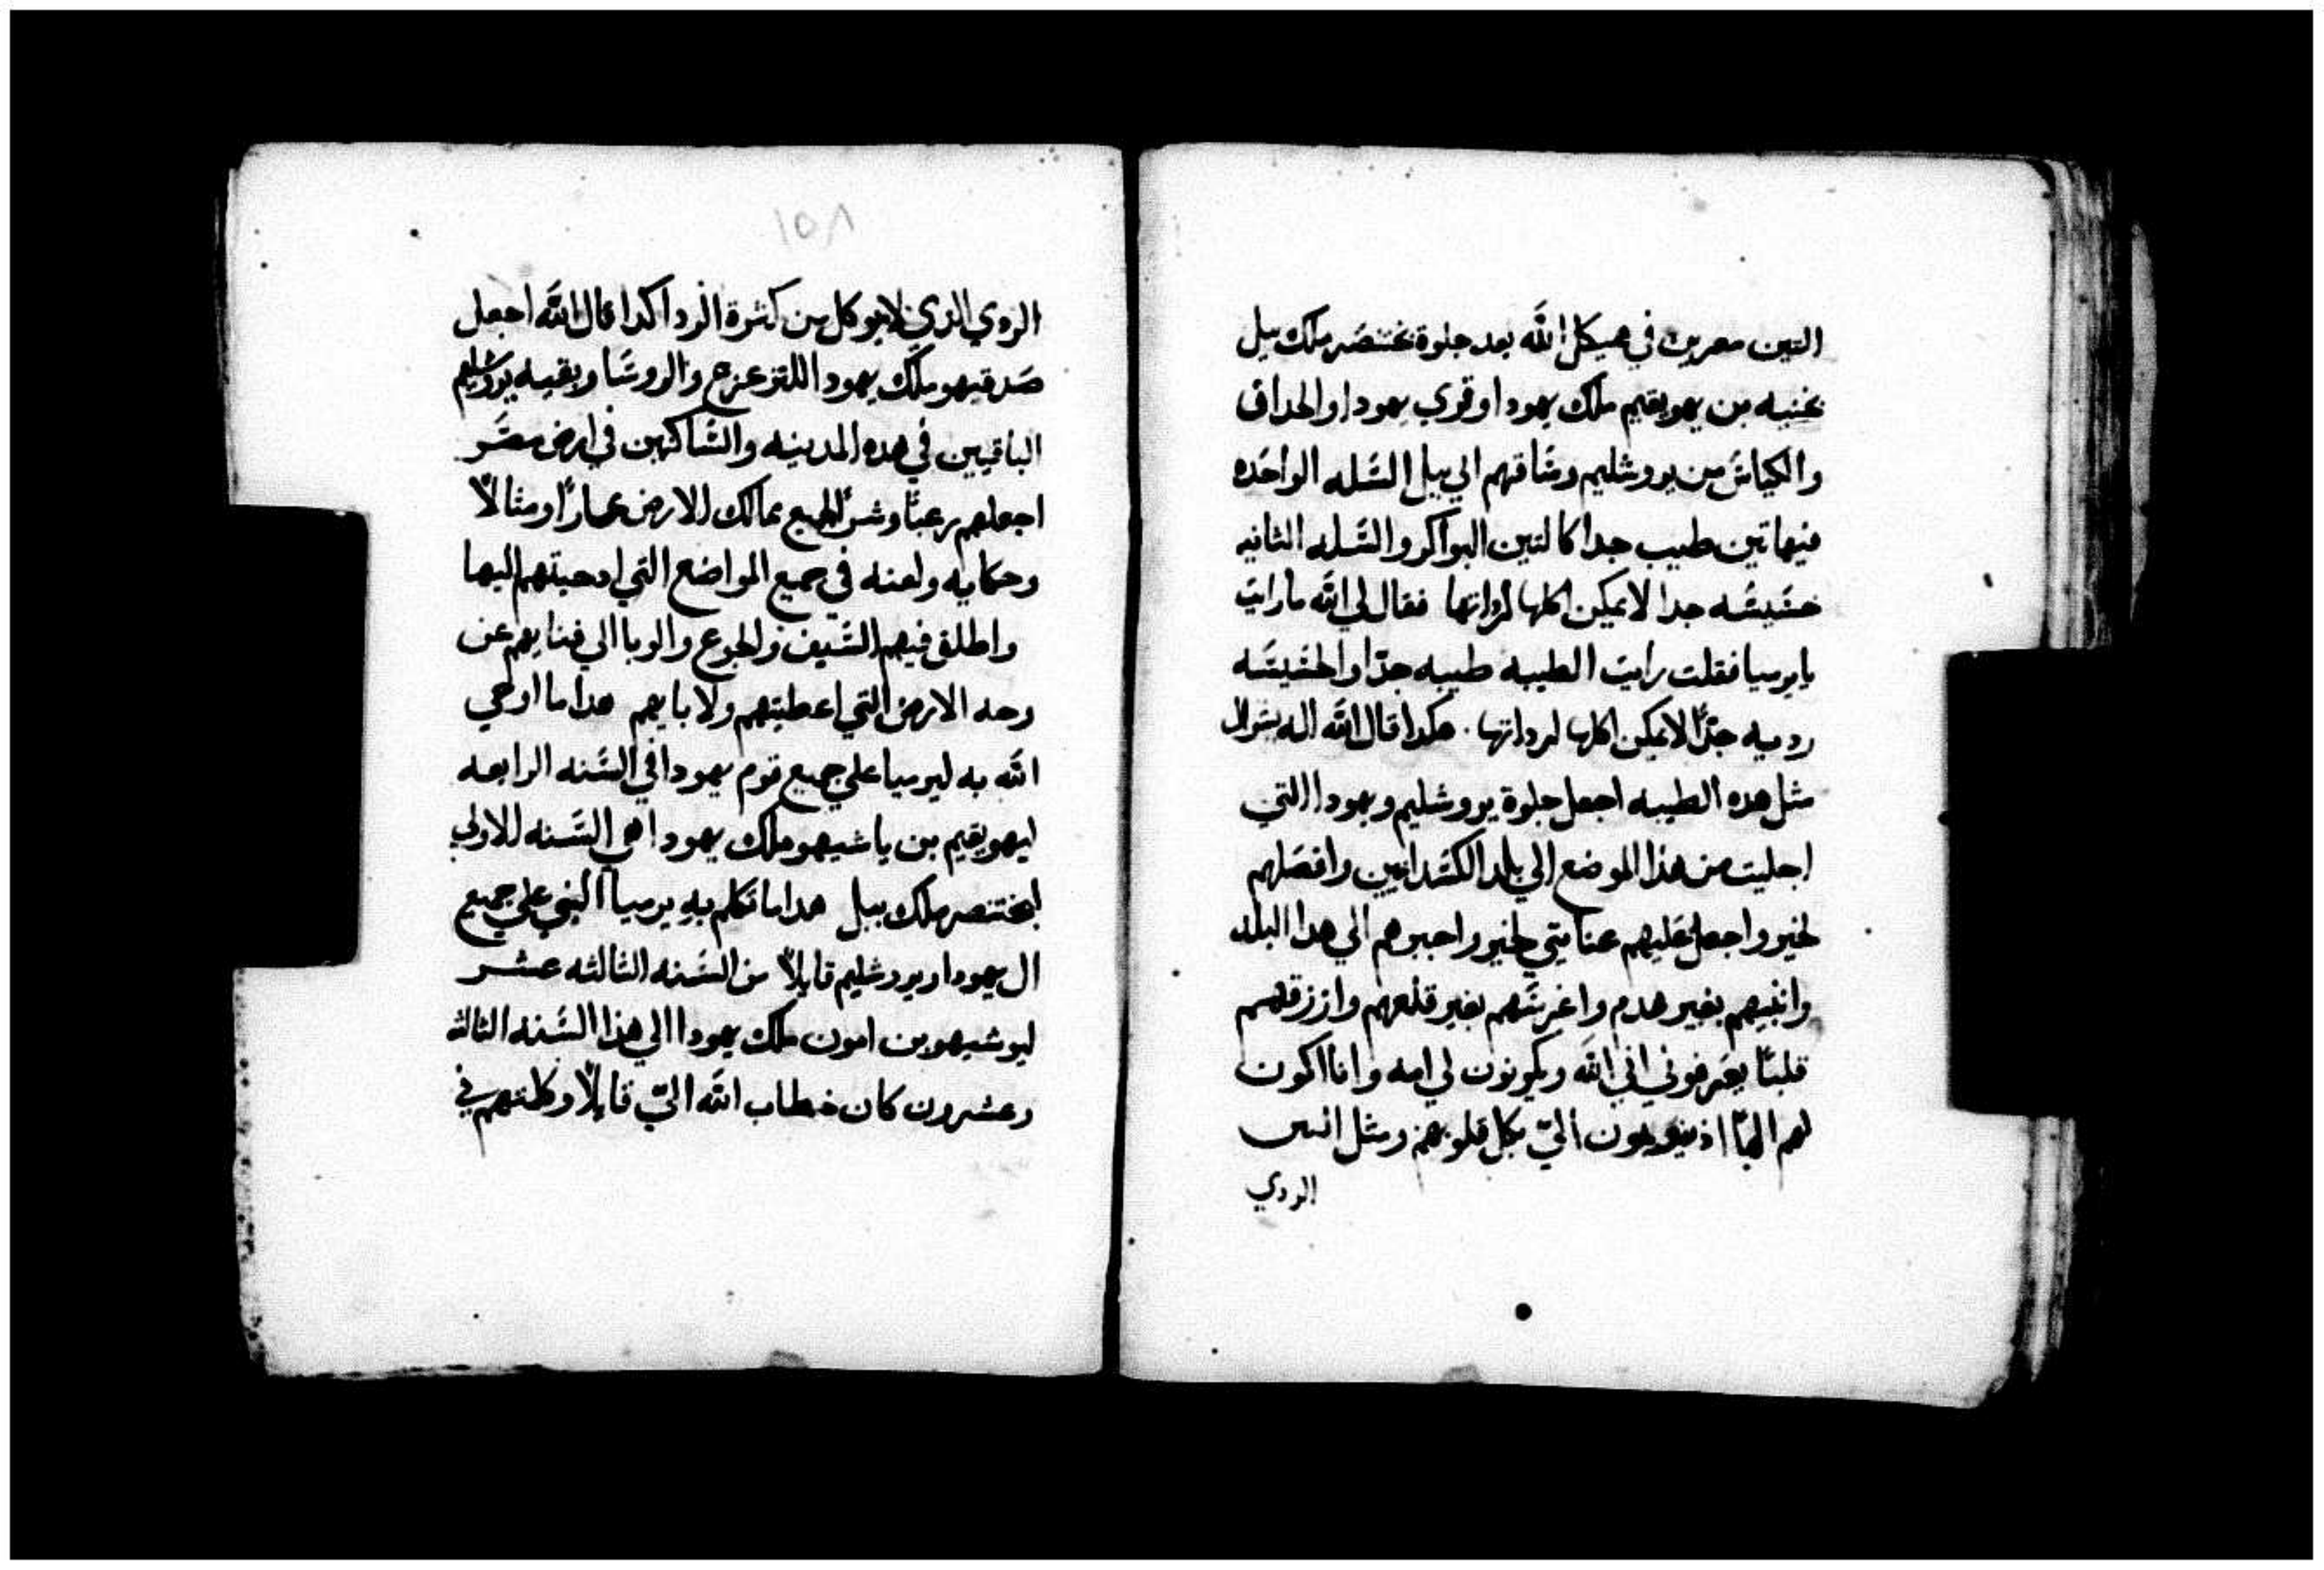 التين معربين في هيكل الله بعد جلوة بختنصر ملك ببل
يخنيه بن يهويقيم ملك يهودا وقري يهودا والحداق
والكياس من يروشليم وساقهم الي ببل السله الواحده
فيها تين طيب جدا كالتين البواكر والسله الثانيه
خسيسه جدا لا يمكن اكلها لرداتها فقال لي الله ما رايت
يا يرميا فقلت رايت الطيبه طيبه جدا والخسيسه
رديه جدا لا يمكن اكلها لرداتها . هكدا قال الله اله يسرال
مثل هده الطيبه اجعل جلوة يروشليم ويهودا التي
اجليت من هذا الموضع الي بلد الكسدانيين وافصلهم
لخير واجعل عليهم عنايتي لخير واجبرهم الي هدا البلد
وابنيهم بغير هدم واغرسهم بغير قلعهم وارزقهم
قلبا يعرفوني اني الله ويكونون لي امه وانا اكون
لهم الها اذ يتوبون الي بكل قلوبهم ومثل التين
الردي
١٥٨
الردي الذي لا يوكل من كثرة الردا كدا قال الله اجعل
صدقيهو ملك يهودا للتزعزع والروسا وبقيه يروشليم
الباقيين في هده المدينه والساكنين في ارض مصر
اجعلهم رعبا وشرا لجميع ممالك الارض عارا ومثالا
وحكايه ولعنه في جميع المواضع التي ادحيتهم اليها
واطلق فيهم السيف والجوع والوبا الي فنايهم عن
وجه الارض التي اعطيتهم ولابايهم هدا ما اوحي
الله به ليرميا علي جميع قوم يهودا في السنه الرابعه
ليهويقيم بن ياشيهو ملك يهودا هي السنه الاولي
لبختنصر ملك ببل هدا ما تكلم به يرميا النبي علي جميع
ال يهودا ويروشليم قايلا من السنه الثالثه عشر
ليوشيهو بن امون ملك يهودا الي هذا السنه الثالثه
وعشرون كان خطاب الله الي قايلا وكلمتهم في